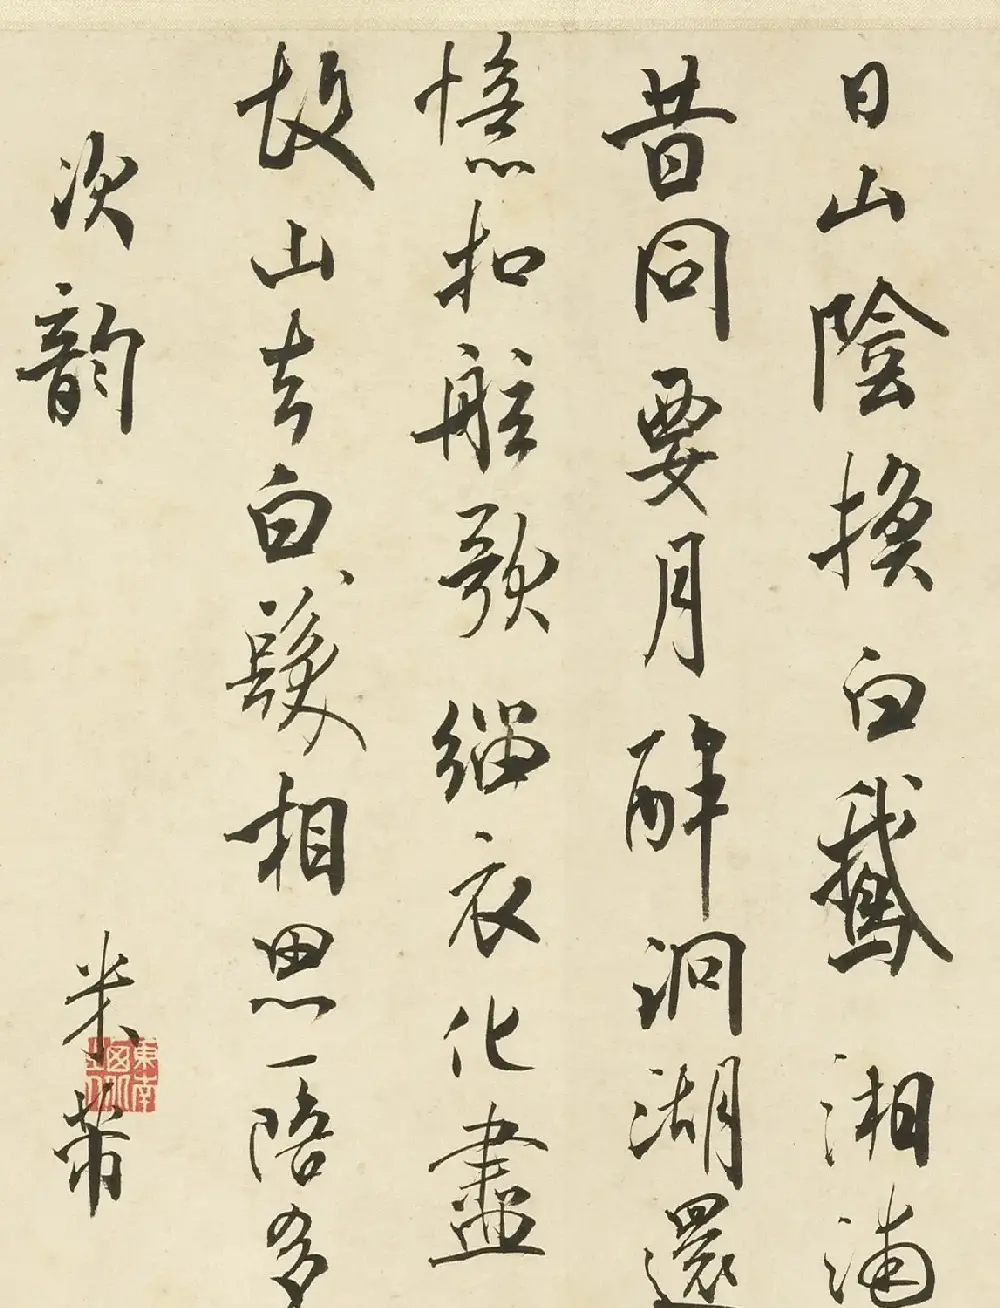 日山陰換白鵝湘浦
昔同要月醉洞湖還
憶扣舷歌緇衣化盡
故山去白髮相思一陪多
次韵
米芾
東南